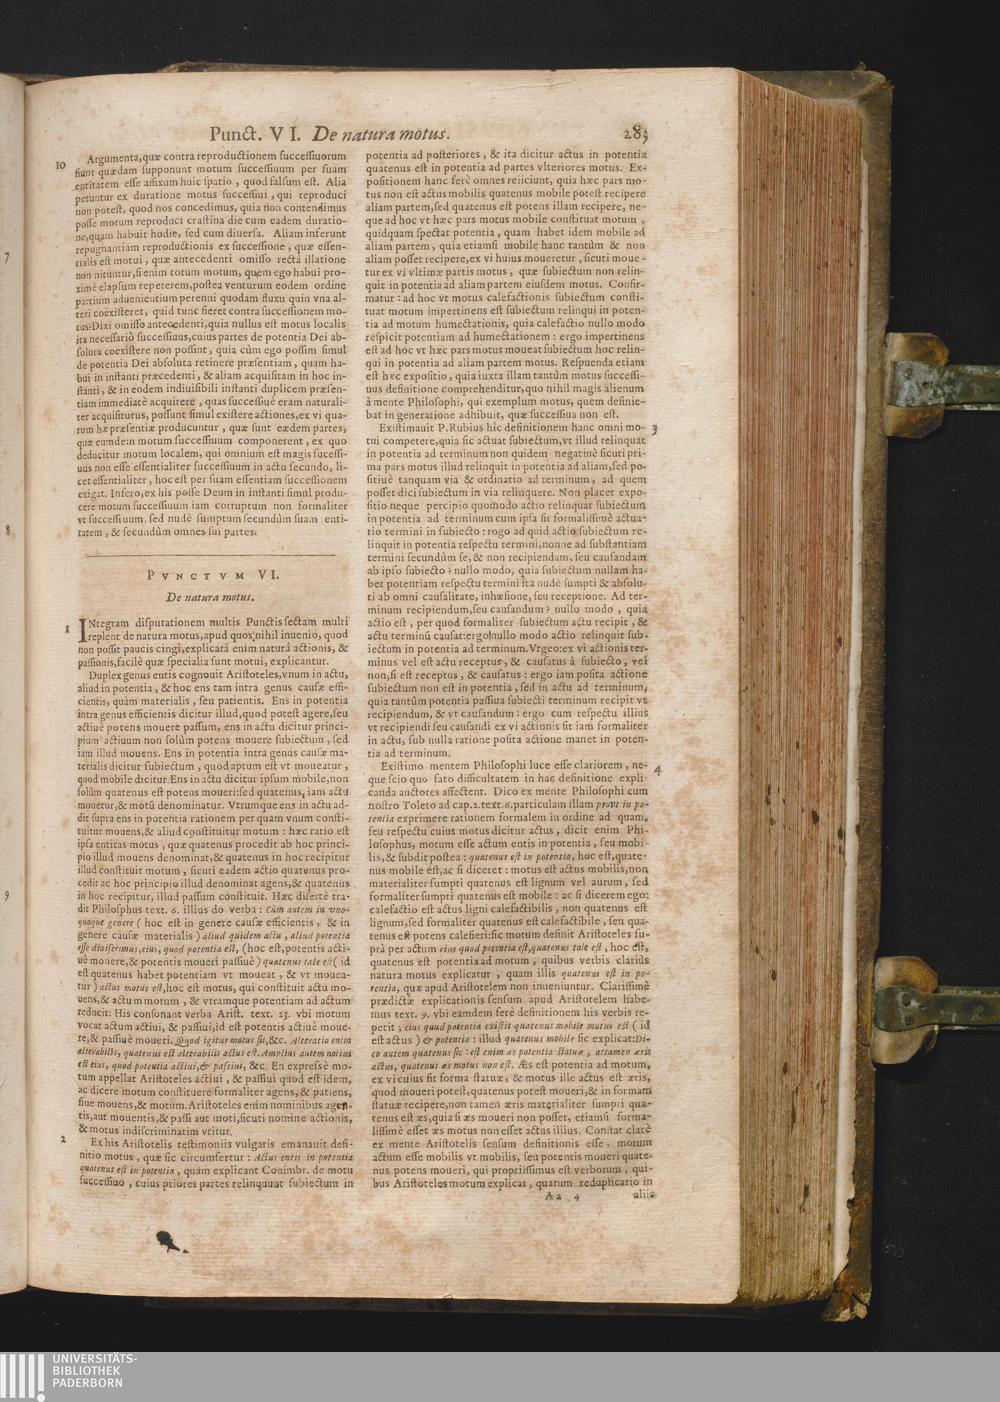 Punct. VI. De natura motus. 283
10 Argumenta,quæ contra reproductionem successiuorum
fiunt quædam supponunt motum successiuum per suam
entitatem esse affixum huic spatio, quod falsum est. Alia
petuntur ex duratione motus successiui, qui reproduci
non potest, quod nos concedimus, quia non contendimus
posse motum reproduci crastina die cum eadem duratio-
ne,quam habuit hodie, sed cum diuersa. Aliam inferunt
repugnantiam reproductionis ex successione, quæ essen-
tialis est motui, quæ antecedenti omisso rectâ illatione
non nituntur,si enim totum motum, quem ego habui pro-
ximè elapsum repeterem,postea venturum eodem ordine
partium aduenientium perenni quodam fluxu quin vna al-
teri coëxisteret, quid tunc fieret contra successionem mo-
tus?Dixi omisso antecedenti,quia nullus est motus localis
ita necessariò successiuus,cuius partes de potentia Dei ab-
soluta coexistere non possint, quia cùm ego possim simul
de potentia Dei absoluta retinere præsentiam, quam ha-
bui in instanti præcedenti, & aliam acquisitam in hoc in-
stanti, & in eodem indiuisibili instanti duplicem præsen-
tiam immediatè acquirere, quas successiuè eram naturali-
ter acquisiturus, possunt simul existere actiones,ex vi qua-
rum hæ præsentiæ producuntur, quæ sunt eædem partes,
quæ eumdem motum successiuum componerent, ex quo
deducitur motum localem, qui omnium est magis sucessi-
uus non esse essentialiter successiuum in actu secundo, li-
cet essentialiter, hoc est per suam essentiam successionem
exigat. Infero,ex his posse Deum in instanti simul produ-
cere motum successiuum iam corruptum non formaliter
vt successiuum, sed nudè sumptum secundùm suam enti-
tatem, & secundùm omnes sui partes.
PVNCTVM VI.
De natura motus.
1 INtegram disputationem multis Punctis sectam multi
replent de natura motus,apud quos nihil inuenio, quod
non possit paucis cingi,explicatâ enim naturâ actionis, &
passionis,facilè quæ specialia sunt motui, explicantur.
Duplex genus entis cognouit Aristoteles,vnum in actu,
aliud in potentia, & hoc ens tam intra genus causæ effi-
cientis, quàm materialis, seu patientis. Ens in potentia
intra genus efficientis dicitur illud,quod potest agere,seu
actiuè potens mouere passum, ens in actu dicitur princi-
pium actiuum non solùm potens mouere subiectum, sed
iam illud mouens. Ens in potentia intra genus causæ ma-
terialis dicitur subiectum, quod aptum est vt moueatur,
quod mobile dicitur.Ens in actu dicitur ipsum mobile,non
solùm quatenus est potens moueri:sed quatenus, iam actu
mouetur,& motû denominatur. Vtrumque ens in actu ad-
dit supra ens in potentia rationem per quam vnum consti-
tuitur mouens,& aliud constituitur motum: hæc ratio est
ipsa entitas motus, quæ quatenus procedit ab hoc princi-
pio illud mouens denominat,& quatenus in hoc recipitur
illud constituit motum, sicuti eadem actio quatenus pro-
cedit ac hoc principio illud denominat agens,& quatenus
in hoc recipitur, illud passum constituit. Hæc disertè tra-
dit Philosphus text. 6. illius do verba: Cùm autem in vno-
quoque genere (hoc est in genere causæ efficientis, & in
genere causæ materialis) aliud quidem actu, aliud potentia
esse diuiserimus,eius, quod potentia est, (hoc est,potentis acti-
uè mouere,& potentis moueri passiuè) quatenus tale est (id
est quatenus habet potentiam vt moueat, & vt mouea-
tur) actus motus est,hoc est motus, qui constituit actu mo-
uens,& actu motum, & vtramque potentiam ad actum
reducit: His consonant verba Arist. text. 23. vbi motum
vocat actum actiui, & passiui,id est potentis actiuè moue-
re,& passiuè moueri. Quod igitur motus sit,&c. Alteratio enim
alterabilis, quatenus est alterabilis actus est.Amplius autem notius
est eius, quod potentia actiui,& passiui, &c. En expressè mo-
tum appellat Aristoteles actiui, & passiui quod est idem,
ac dicere motum constituere formaliter agens, & patiens,
siue mouens,& motum.Aristoteles enim nominibus agen-
tis,aut mouentis,& passi aut moti,sicuti nomine actionis,
& motus indiscriminatim vtitur.
2 Ex his Aristotelis testimoniis vulgaris emanauit defi-
nitio motus, quæ sic circumfertur: Actus entis in potentia
quatenus est in potentia, quàm explicant Conimbr. de motu
successiuo, cuius priores partes relinquunt subiectum in
potentia ad posteriores, & ita dicitur actus in potentia
quatenus est in potentia ad partes vlteriores motus. Ex-
positionem hanc ferè omnes reiiciunt, quia hæc pars mo-
tus non est actus mobilis quatenus mobile potest recipere
aliam partem,sed quatenus est potens illam recipere, ne-
que ad hoc vt hæc pars motus mobile constituat motum,
quidquam spectat potentia, quam habet idem mobile ad
aliam partem, quia etiamsi mobile hanc tantùm & non
aliam posset recipere,ex vi huius moueretur, sicuti moue-
tur ex vi vltimæ partis motus, quæ subiectum non relin-
quit in potentia ad aliam partem eiusdem motus. Confir-
matur: ad hoc vt motus calefactionis subiectum consti-
tuat motum impertinens est subiectum relinqui in poten-
tia ad motum humectationis, quia calefactio nullo modo
respicit potentiam ad humectationem: ergo impertinens
est ad hoc vt hæc pars motus moueat subiectum hoc relin-
qui in potentia ad aliam partem motus. Respuenda etiam
est hæc expositio, quia iuxta illam tantùm motus successi-
uus definitione comprehenditur,quo nihil magis alienum
à mente Philosophi, qui exemplum motus, quem definie-
bat in generatione adhibuit, quæ successiua non est.
3 Existimauit P.Rubius hic definitionem hanc omni mo-
tui competere,quia sic actuat subiectum,vt illud relinquat
in potentia ad terminum non quidem negatiuè sicuti pri-
ma pars motus illud relinquit in potentia ad aliam,sed po-
sitiuè tanquam via & ordinatio ad terminum, ad quem
posset dici subiectum in via relinquere. Non placet expo-
sitio neque percipio quomodo actio relinquat subiectum
in potentia ad terminum cum ipsa sit formalissimè actua-
tio termini in subiecto: rogo ad quid actio subiectum re-
linquit in potentia respectu termini,nonne ad substantiam
termini secundùm se, & non recipiendam, seu causandam
ab ipso subiecto? nullo modo, quia subiectum nullam ha-
bet potentiam respectu termini ita nudè sumpti & absolu-
ti ab omni causalitate, inhæsione, seu receptione. Ad ter-
minum recipiendum,seu causandum? nullo modo, quia
actio est, per quod formaliter subiectum actu recipit, &
actu terminû causat:ergo nullo modo actio relinquit sub-
iectum in potentia ad terminum.Vrgeo:ex vi actionis ter-
minus vel est actu receptus, & causatus à subiecto, vel
non;si est receptus, & causatus: ergo iam posita actione
subiectum non est in potentia, sed in actu ad terminum,
quia tantùm potentia passiua subiecti terminum recipit vt
recipiendum, & vt causandum: ergo cum respectu illius
vt recipiendi seu causandi ex vi actionis sit iam formaliter
in actu, sub nulla ratione posita actione manet in poten-
tia ad terminum.
4 Existimo mentem Philosophi luce esse clariorem, ne-
que scio quo fato difficultatem in hac definitione expli-
canda auctores affectent. Dico ex mente Philosophi cum
nostro Toleto ad cap.2.text.6.particulam illam prout in po-
tentia exprimere rationem formalem in ordine ad quam,
seu respectu cuius motus dicitur actus, dicit enim Phi-
losophus, motum esse actum entis in potentia, seu mobi-
lis,& subdit postea: quatenus est in potentia, hoc est,quate-
nus mobile est,ac si diceret: motus est actus mobilis,non
materialiter sumpti quatenus est lignum vel aurum, sed
formaliter sumpti quatenus est mobile: ac si dicerem ego:
calefactio est actus ligni calefactibilis, non quatenus est
lignum,sed formaliter quatenus est calefactibile, seu qua-
tenus est potens calefieri:sic motum definit Aristoteles su-
prà per actum eius quod potentia est,quatenus tale est, hoc est,
quatenus est potentia ad motum, quibus verbis clariùs
natura motus explicatur, quam illis quatenus est in po-
tentia, quæ apud Aristotelem non inueniuntur. Clarissimè
prædictæ explicationis sensum apud Aristotelem habe-
mus text. 9. vbi eamdem ferè definitionem his verbis re-
petit; eius quod potentia existit quatenus mobile motus est (id
est actus) & potentia: illud quatenus mobile sic explicat:Di-
co autem quatenus sic: est enim æs potentia statua, attamen æris
actus, quatenus æs motus non est. Æs est potentia ad motum,
ex vi cuius fit forma statuæ, & motus ille actus est æris,
quod moueri potest,quatenus potest moueri,& in formam
statuæ recipere,non tamen æris materialiter sumpti qua-
tenus est æs,quia si æs moueri non posset, etiamsi forma-
lissimè esset æs motus non esset actus illius. Constat clarè
ex mente Aristotelis sensum definitionis esse, motum
actum esse mobilis vt mobilis, seu potentis moueri quate-
nus potens moueri, qui propriissimus est verborum, qui-
bus Aristoteles motum explicat, quarum reduplicatio in
Aa 4 aliis
7
8
9
UNIVERSITÄTS-
BIBLIOTHEK
PADERBORN